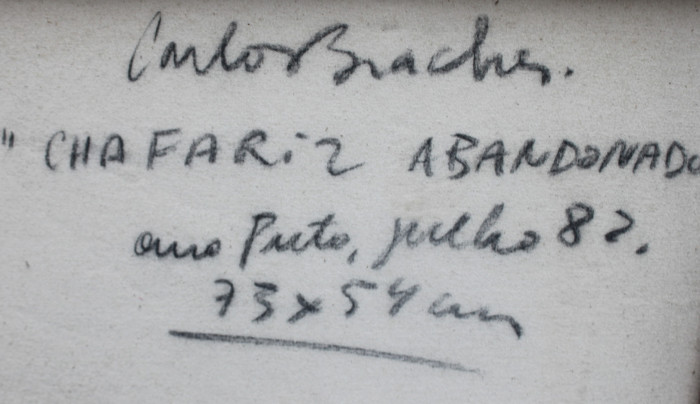 Carlos Bracher.
"CHAFARiZ ABANDONADO
ouro Preto, julho 82.
73x54 cm